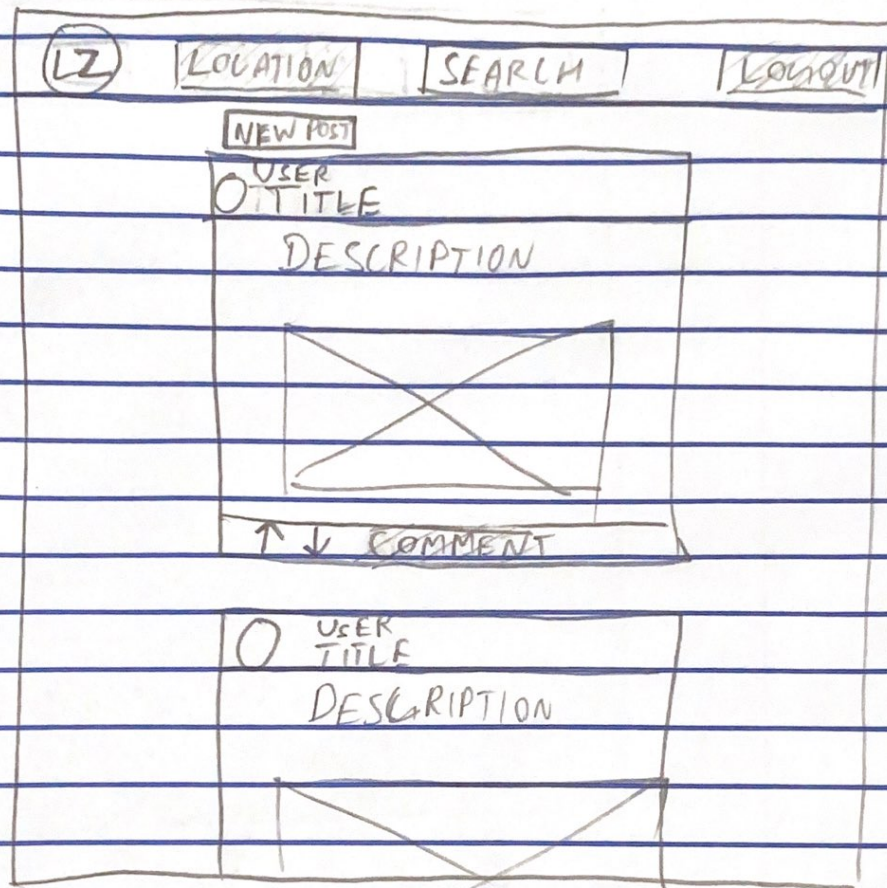 LZ LOCATION SEARCH LOGOUT
NEW POST
USER
TITLE
DESCRIPTION
↑ ↓ COMMENT
USER
TITLE
DESCRIPTION